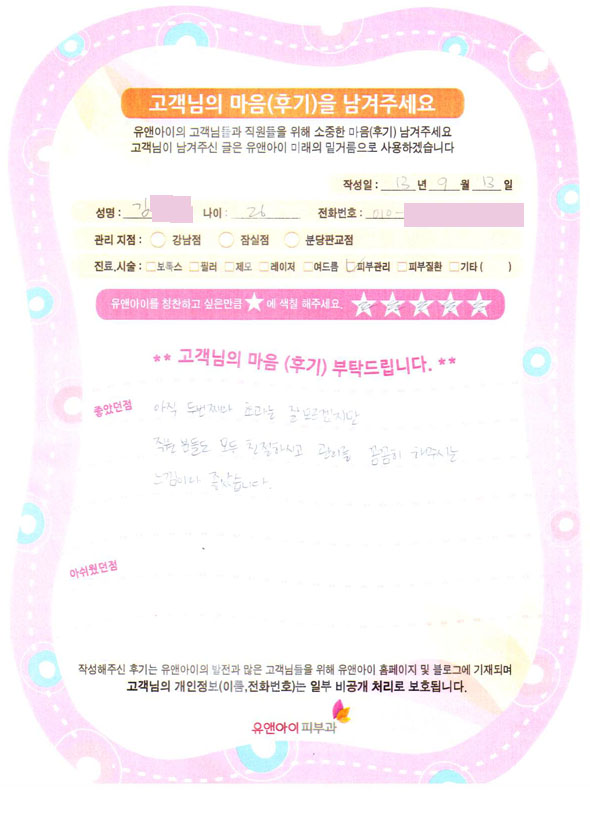 고객님의 마음(후기)을 남겨주세요
유앤아이의 고객님들과 직원들을 위해 소중한 마음(후기) 남겨주세요
고객님이 남겨주신 글은 유앤아이 미래의 밑거름으로 사용하겠습니다
작성일 : 13 년 9 월 13 일
성명 : 김 나이 : 26 전화번호 : 010-
관리 지점 : 강남점 잠실점 분당판교점
진료,시술 : 보톡스 필러 제모 레이저 여드름 피부관리 피부질환 기타 ( )
유앤아이를 칭찬하고 싶은만큼 ★ 에 색칠 해주세요. ★★★★★
** 고객님의 마음 (후기) 부탁드립니다. **
좋았던점 아직 두번째라 효과는 잘모르겠지만
직원분들도 모두 친절하시고 관리를 꼼꼼히 해주시는
느낌이라 좋았습니다.
아쉬웠던점
작성해주신 후기는 유앤아이의 발전과 많은 고객님들을 위해 유앤아이 홈페이지 및 블로그에 기재되며
고객님의 개인정보(이름,전화번호)는 일부 비공개 처리로 보호됩니다.
유앤아이피부과